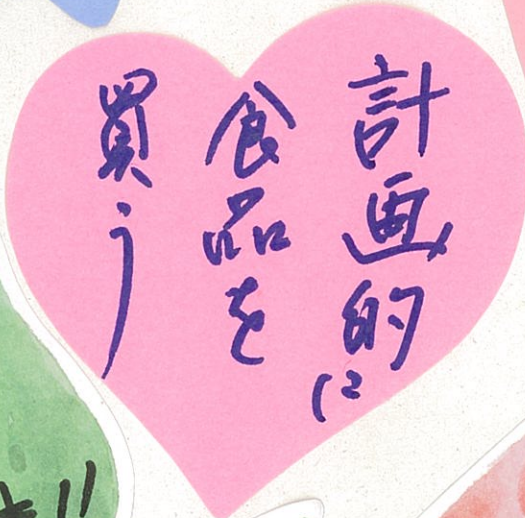 計画的に
食品を
買う